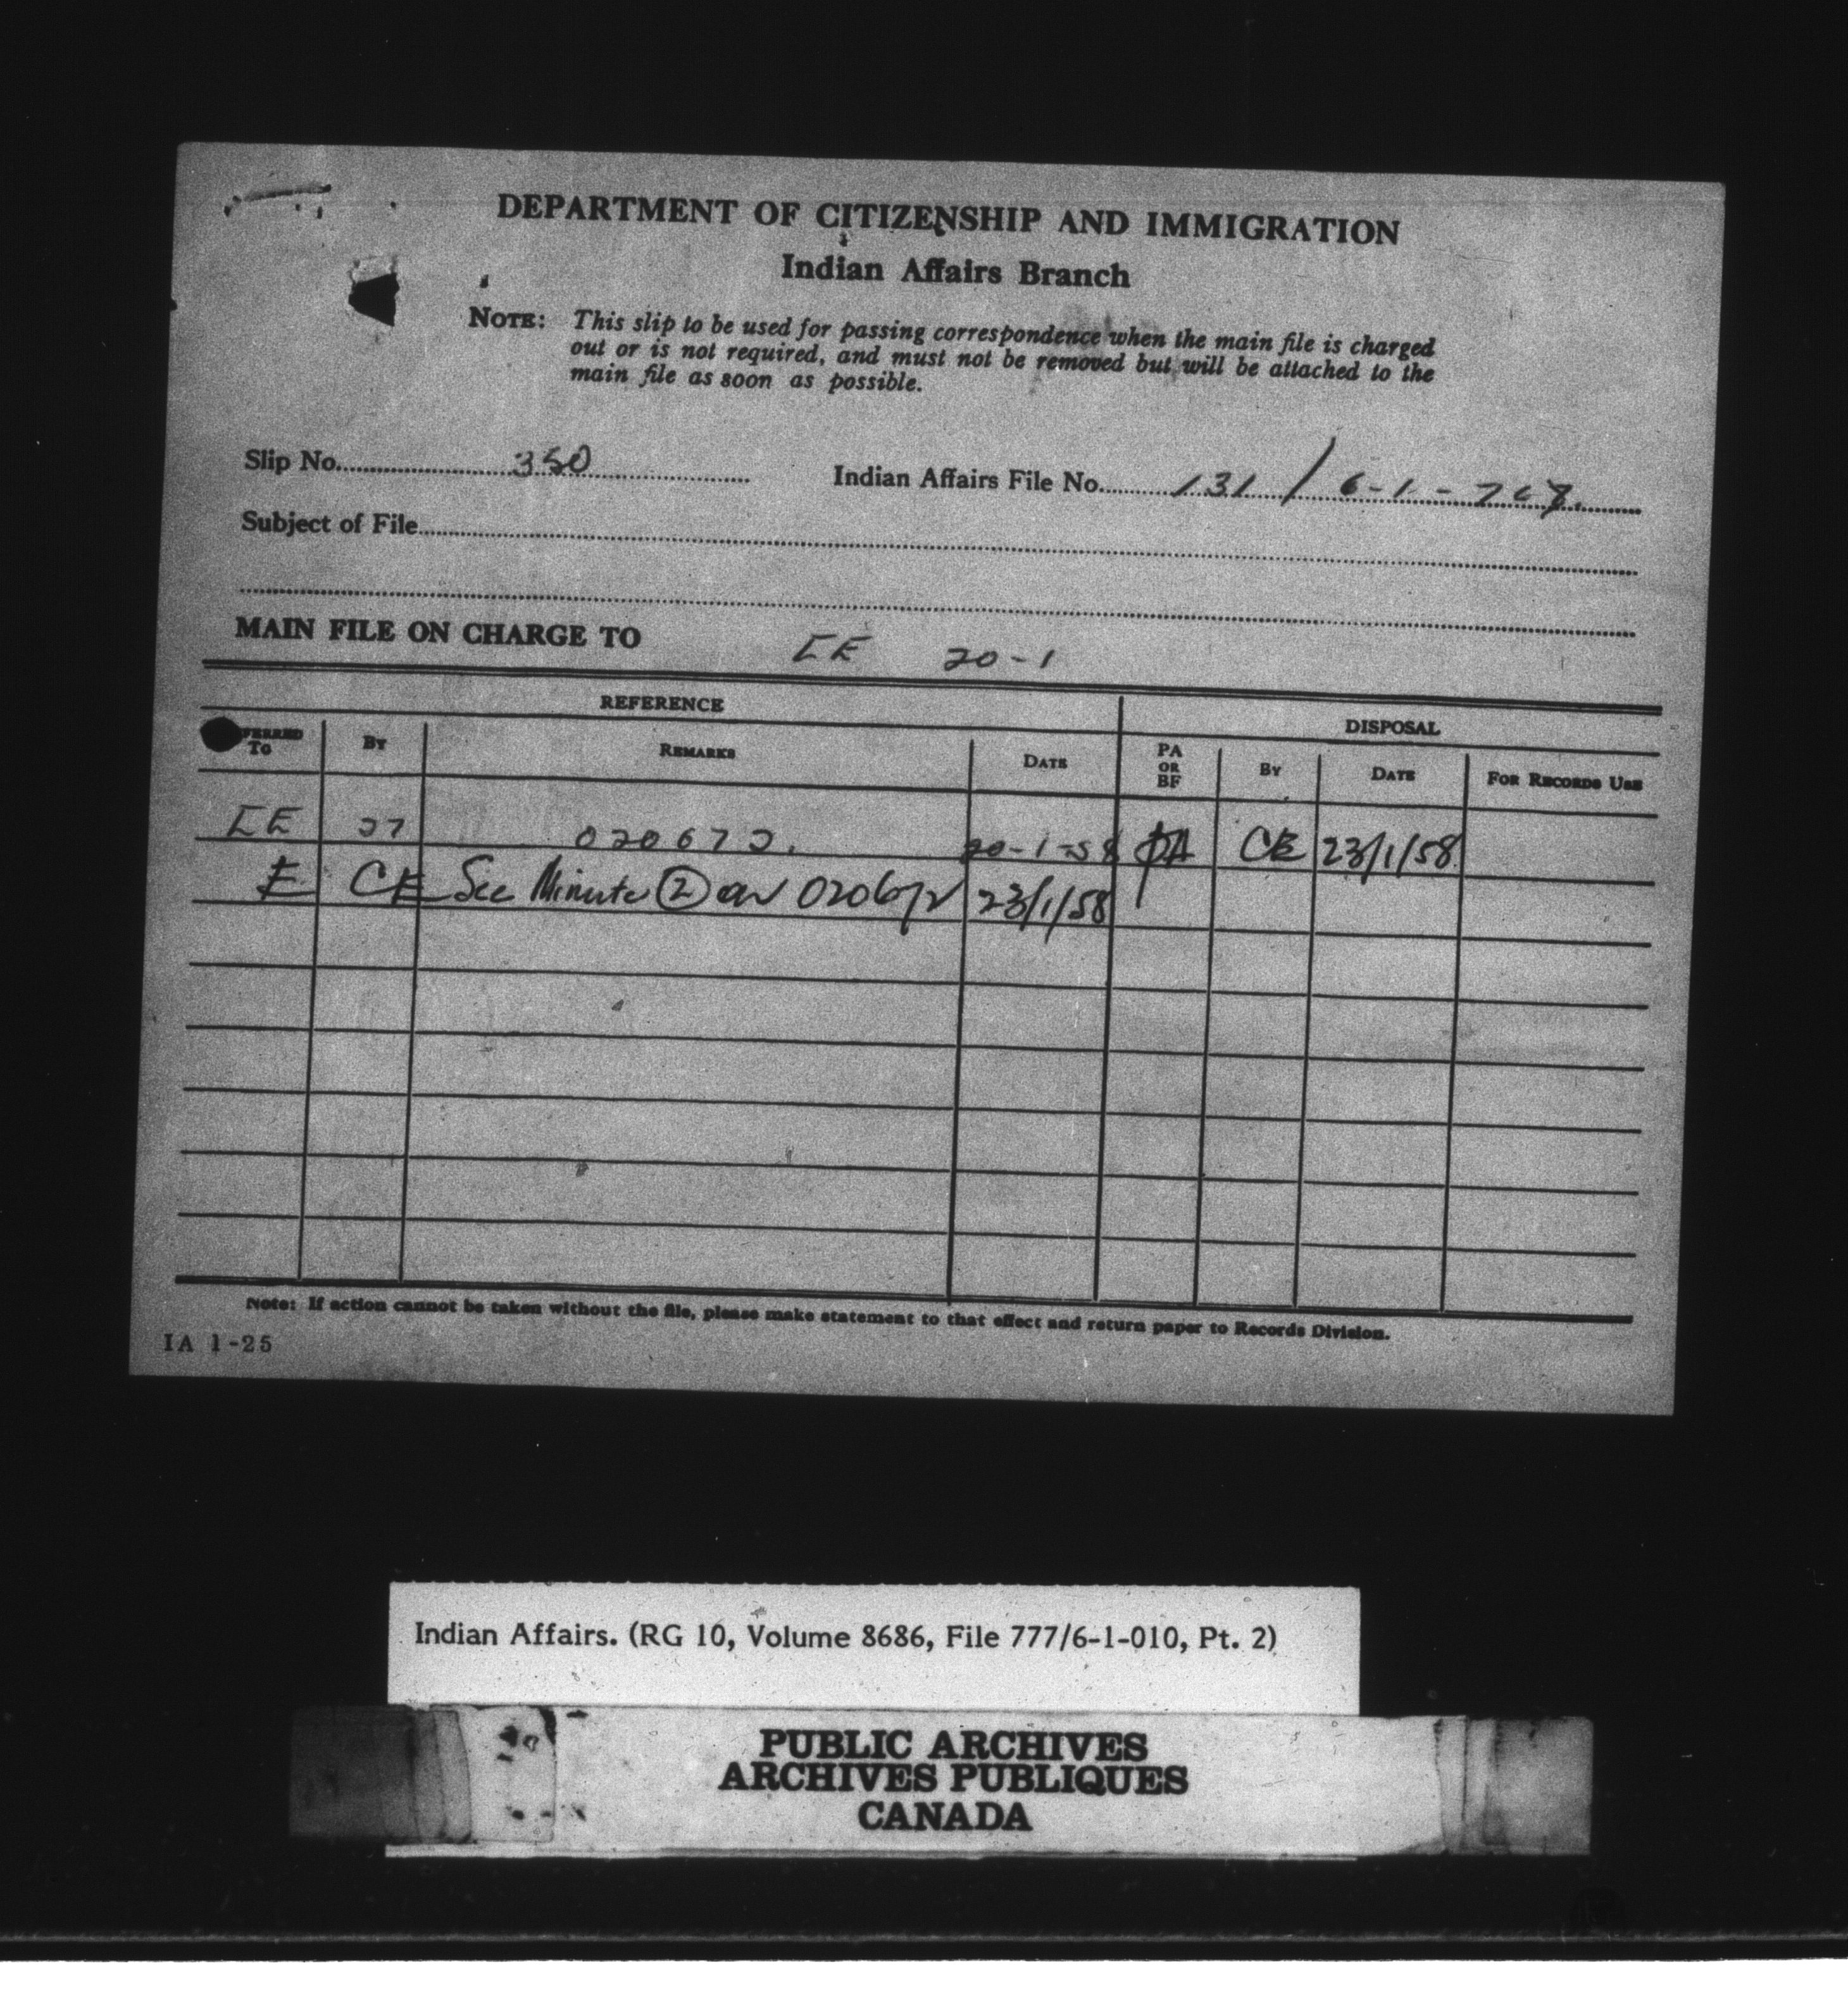 DEPARTMENT OF CITIZENSHIP AND IMMIGRATION
Indian Affairs Branch
NOTE: This slip to be used for passing correspondence when the main file is charged
out or is not required, and must not be removed but will be attached to the
main file as soon as possible.
Slip No. 350 Indian Affairs File No. 131/6-1-
Subject of File
MAIN FILE ON CHARGE TO 20-1
REFERENCE DISPOSAL
To BY REMARKS DATE PA OR BF BY DATE FOR RECORDS USE
27 020672. 20-1-58 PA CE 23/1/58
E CE See Minute (2) on 020672 23/1/58
Note: If action cannot be taken without the file, please make statement to that effect and return paper to Records Division.
IA 1-25
Indian Affairs. (RG 10, Volume 8686, File 777/6-1-010, Pt. 2)
PUBLIC ARCHIVES
ARCHIVES PUBLIQUES
CANADA